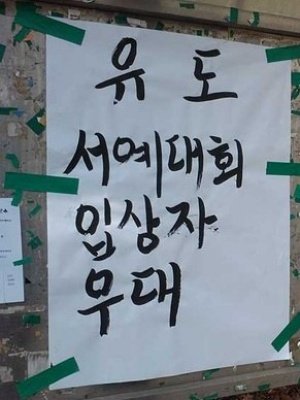 유도
서예대회
입상자
무대